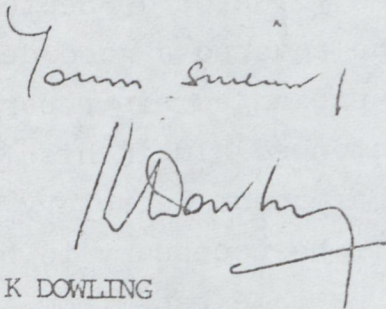 Yours sincerely,
K Dowling
K DOWLING